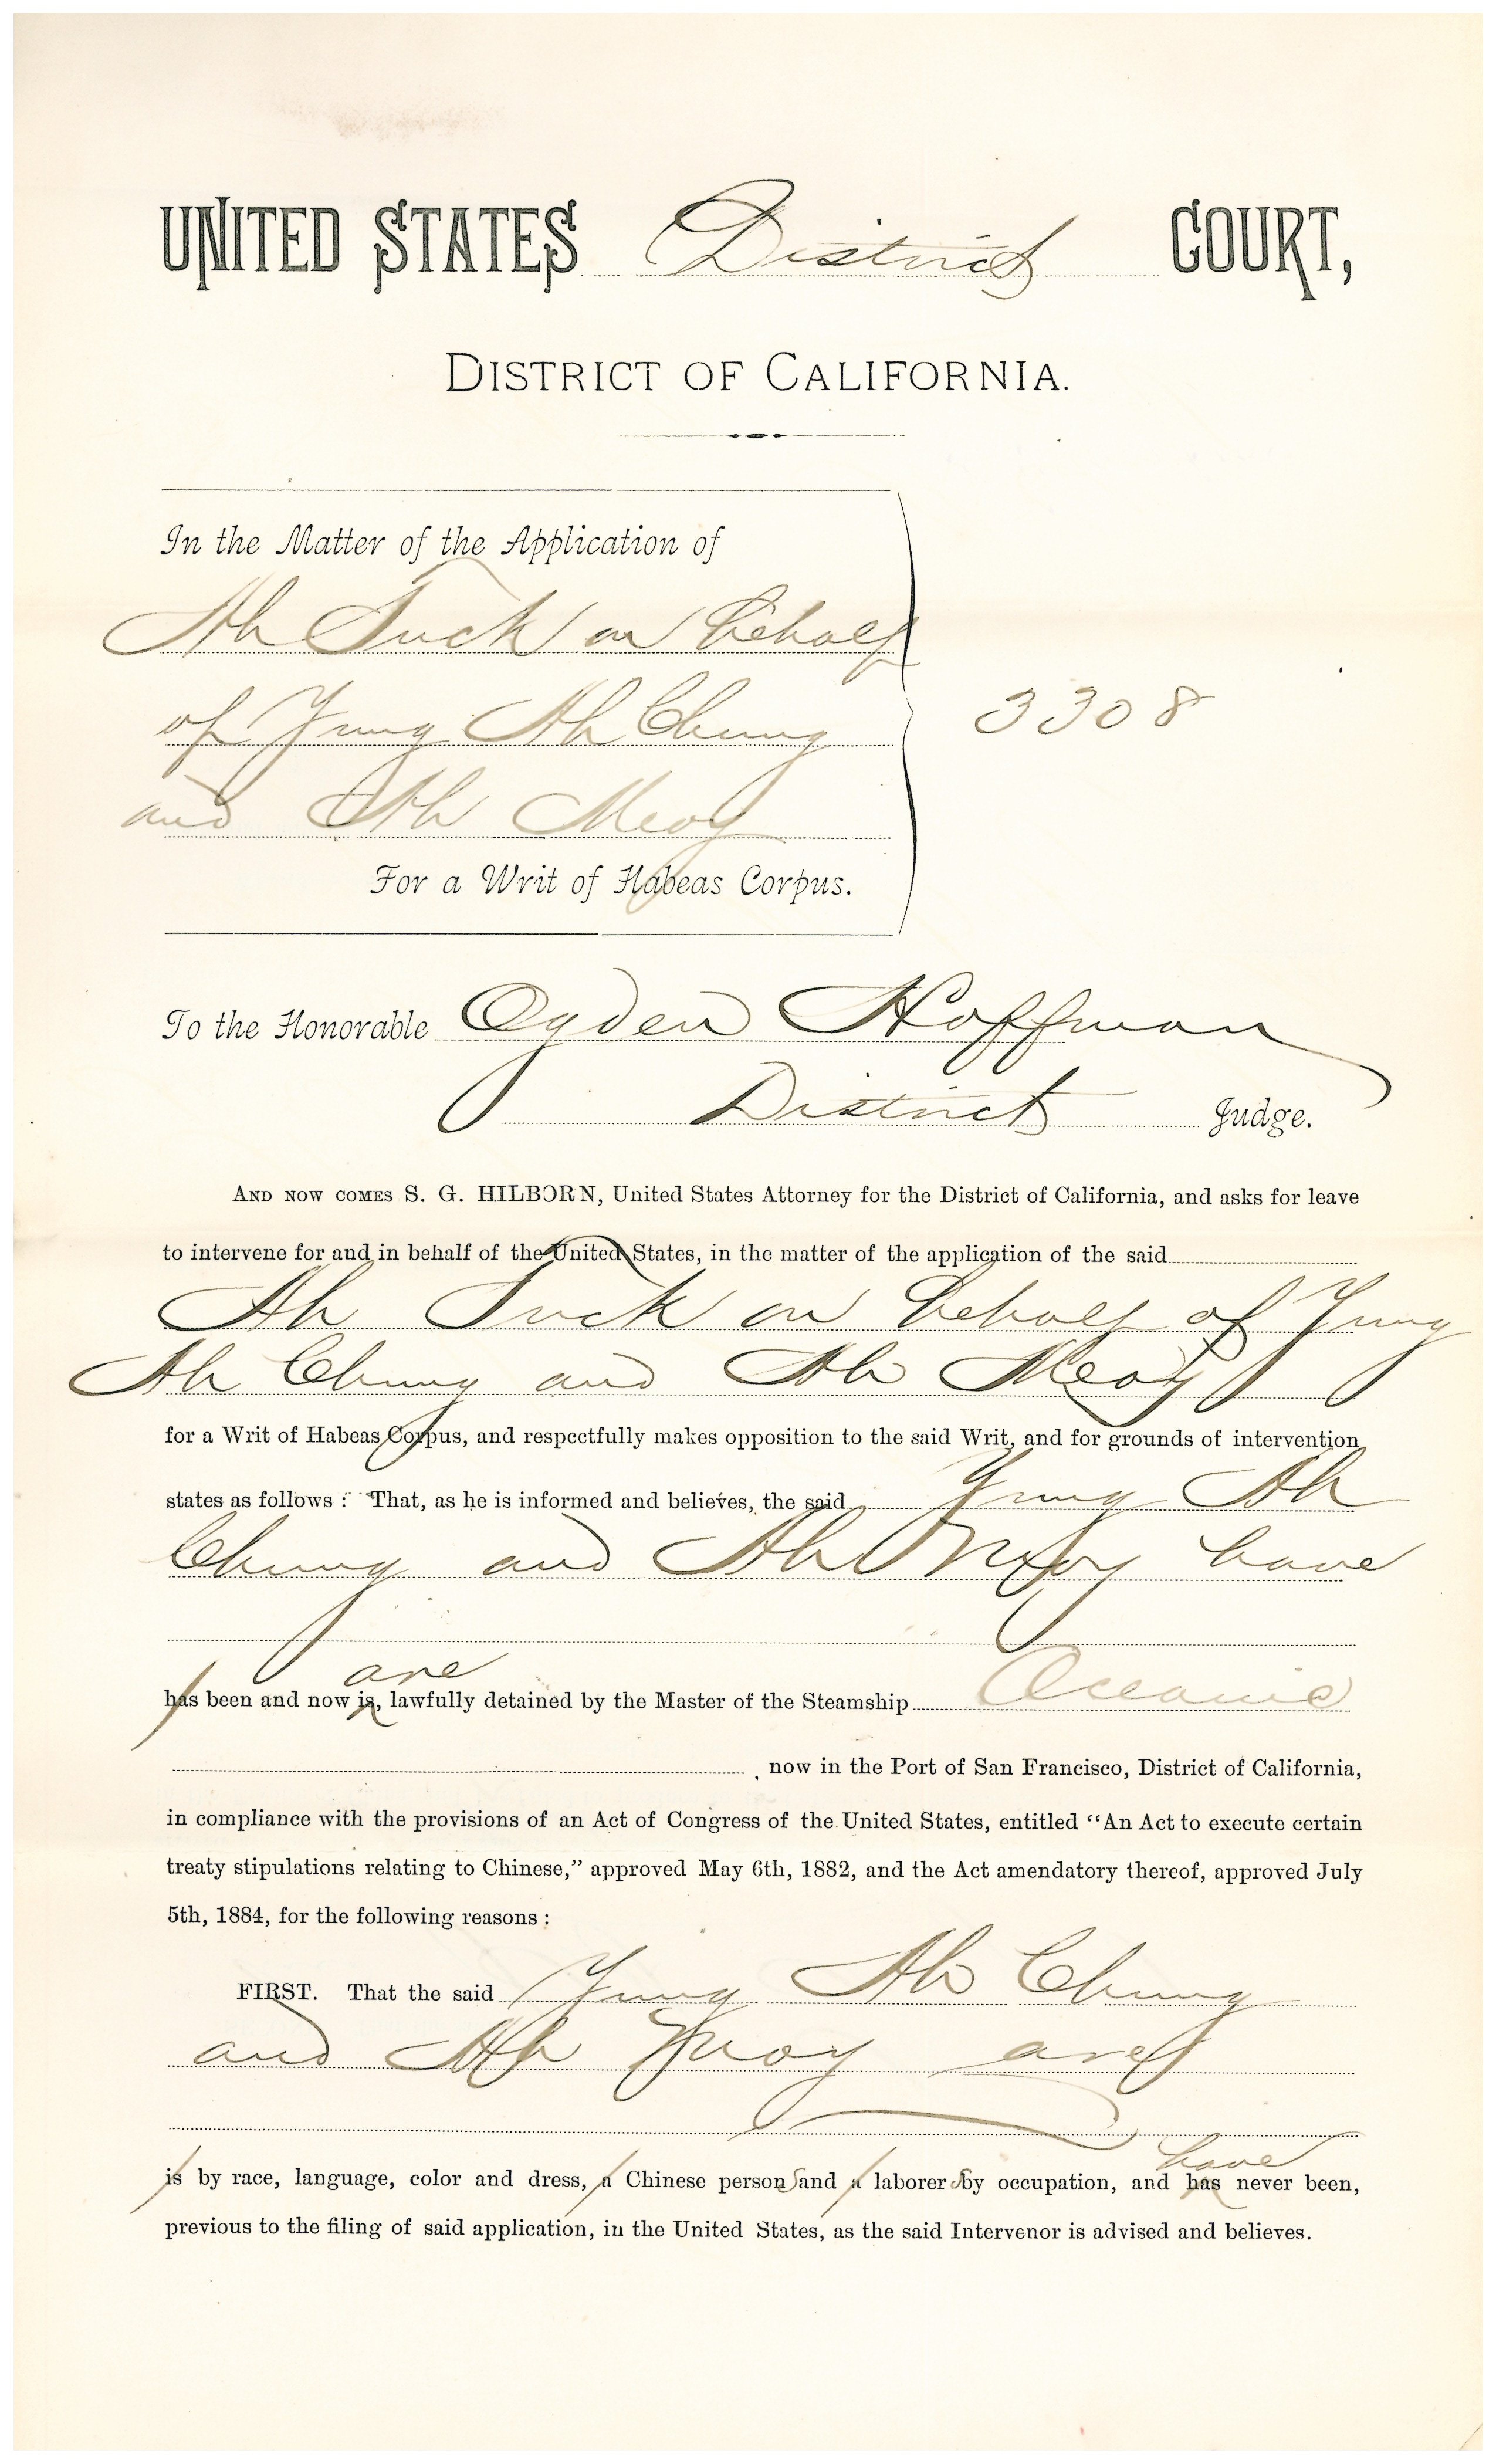 UNITED STATES District COURT,
DISTRICT OF CALIFORNIA.
In the Matter of the Application of
Ah Tuck on behalf
of Yung Ah Chung
and Ah Meoy
3308
For a Writ of Habeas Corpus.
To the Honorable Ogden Hoffman
District Judge.
AND NOW COMES S. G. HILBORN, United States Attorney for the District of California, and asks for leave
to intervene for and in behalf of the United States, in the matter of the application of the said
Ah Tuck on behalf of Yung
Ah Chung and Ah Meoy
for a Writ of Habeas Corpus, and respectfully makes opposition to the said Writ, and for grounds of intervention
states as follows: That, as he is informed and believes, the said Yung Ah
Chung and Ah Moy have
are
has been and now is, lawfully detained by the Master of the Steamship Oceanic
, now in the Port of San Francisco, District of California,
in compliance with the provisions of an Act of Congress of the United States, entitled "An Act to execute certain
treaty stipulations relating to Chinese," approved May 6th, 1882, and the Act amendatory thereof, approved July
5th, 1884, for the following reasons:
FIRST. That the said Yung Ah Chung
and Ah Moy are
have
is by race, language, color and dress, a Chinese persons and a laborers by occupation, and has never been,
previous to the filing of said application, in the United States, as the said Intervenor is advised and believes.